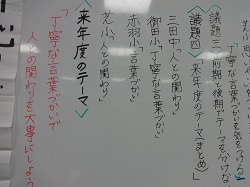 丁寧な言葉づかいを気をつける
議題三「前期と後期でテーマを分けな
議題四〈来年度のテーマまとめ〉」
三田中「人との関わり」
御田小「丁寧な言葉づかい」
赤羽小「言葉づかい」
芝小「人との関わり」
〈来年度のテーマ〉
「丁寧な言葉づかいで
人との関わりを大事にしよう